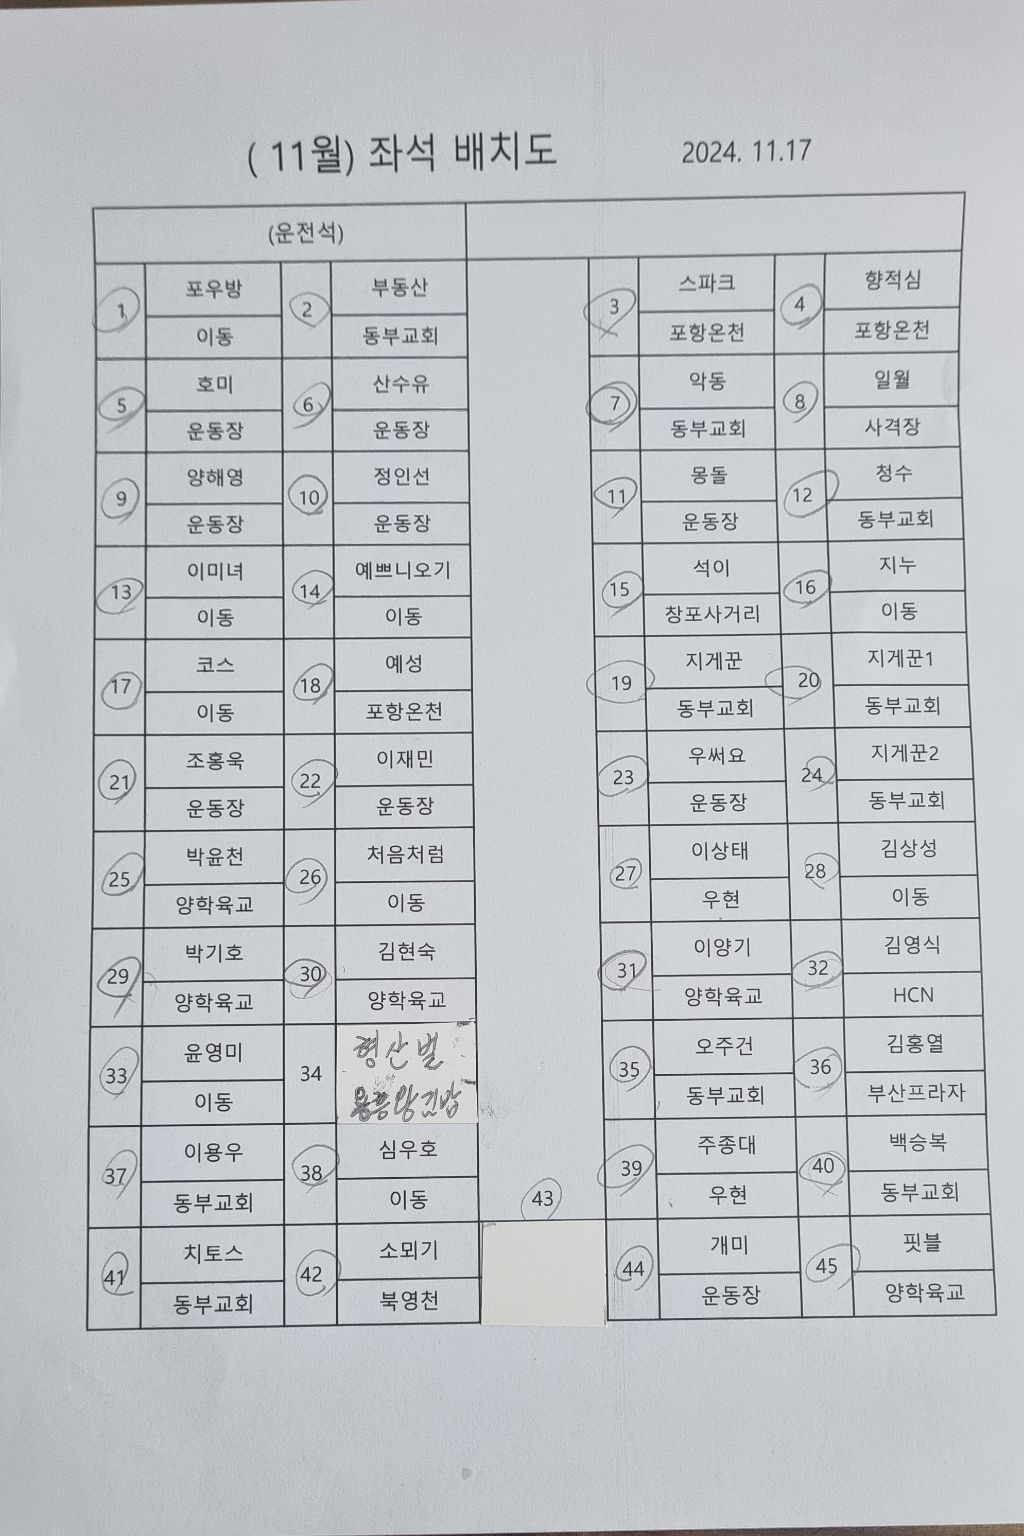 ( 11월) 좌석 배치도 2024. 11.17
(운전석)
1 포우방 2 부동산 3 스파크 4 향적심
이동 동부교회 포항온천 포항온천
5 호미 6 산수유 7 악동 8 일월
운동장 운동장 동부교회 사격장
9 양해영 10 정인선 11 몽돌 12 청수
운동장 운동장 운동장 동부교회
13 이미녀 14 예쁘니오기 15 석이 16 지누
이동 이동 창포사거리 이동
17 코스 18 예성 19 지게꾼 20 지게꾼1
이동 포항온천 동부교회 동부교회
21 조홍욱 22 이재민 23 우써요 24 지게꾼2
운동장 운동장 운동장 동부교회
25 박윤천 26 처음처럼 27 이상태 28 김상성
양학육교 이동 우현 이동
29 박기호 30 김현숙 31 이양기 32 김영식
양학육교 양학육교 양학육교 HCN
33 윤영미 34 형산벌 35 오주건 36 김홍열
이동 용흥왕김밥 동부교회 부산프라자
37 이용우 38 심우호 39 주종대 40 백승복
동부교회 이동 43 우현 동부교회
41 치토스 42 소뫼기 44 개미 45 핏블
동부교회 북영천 운동장 양학육교